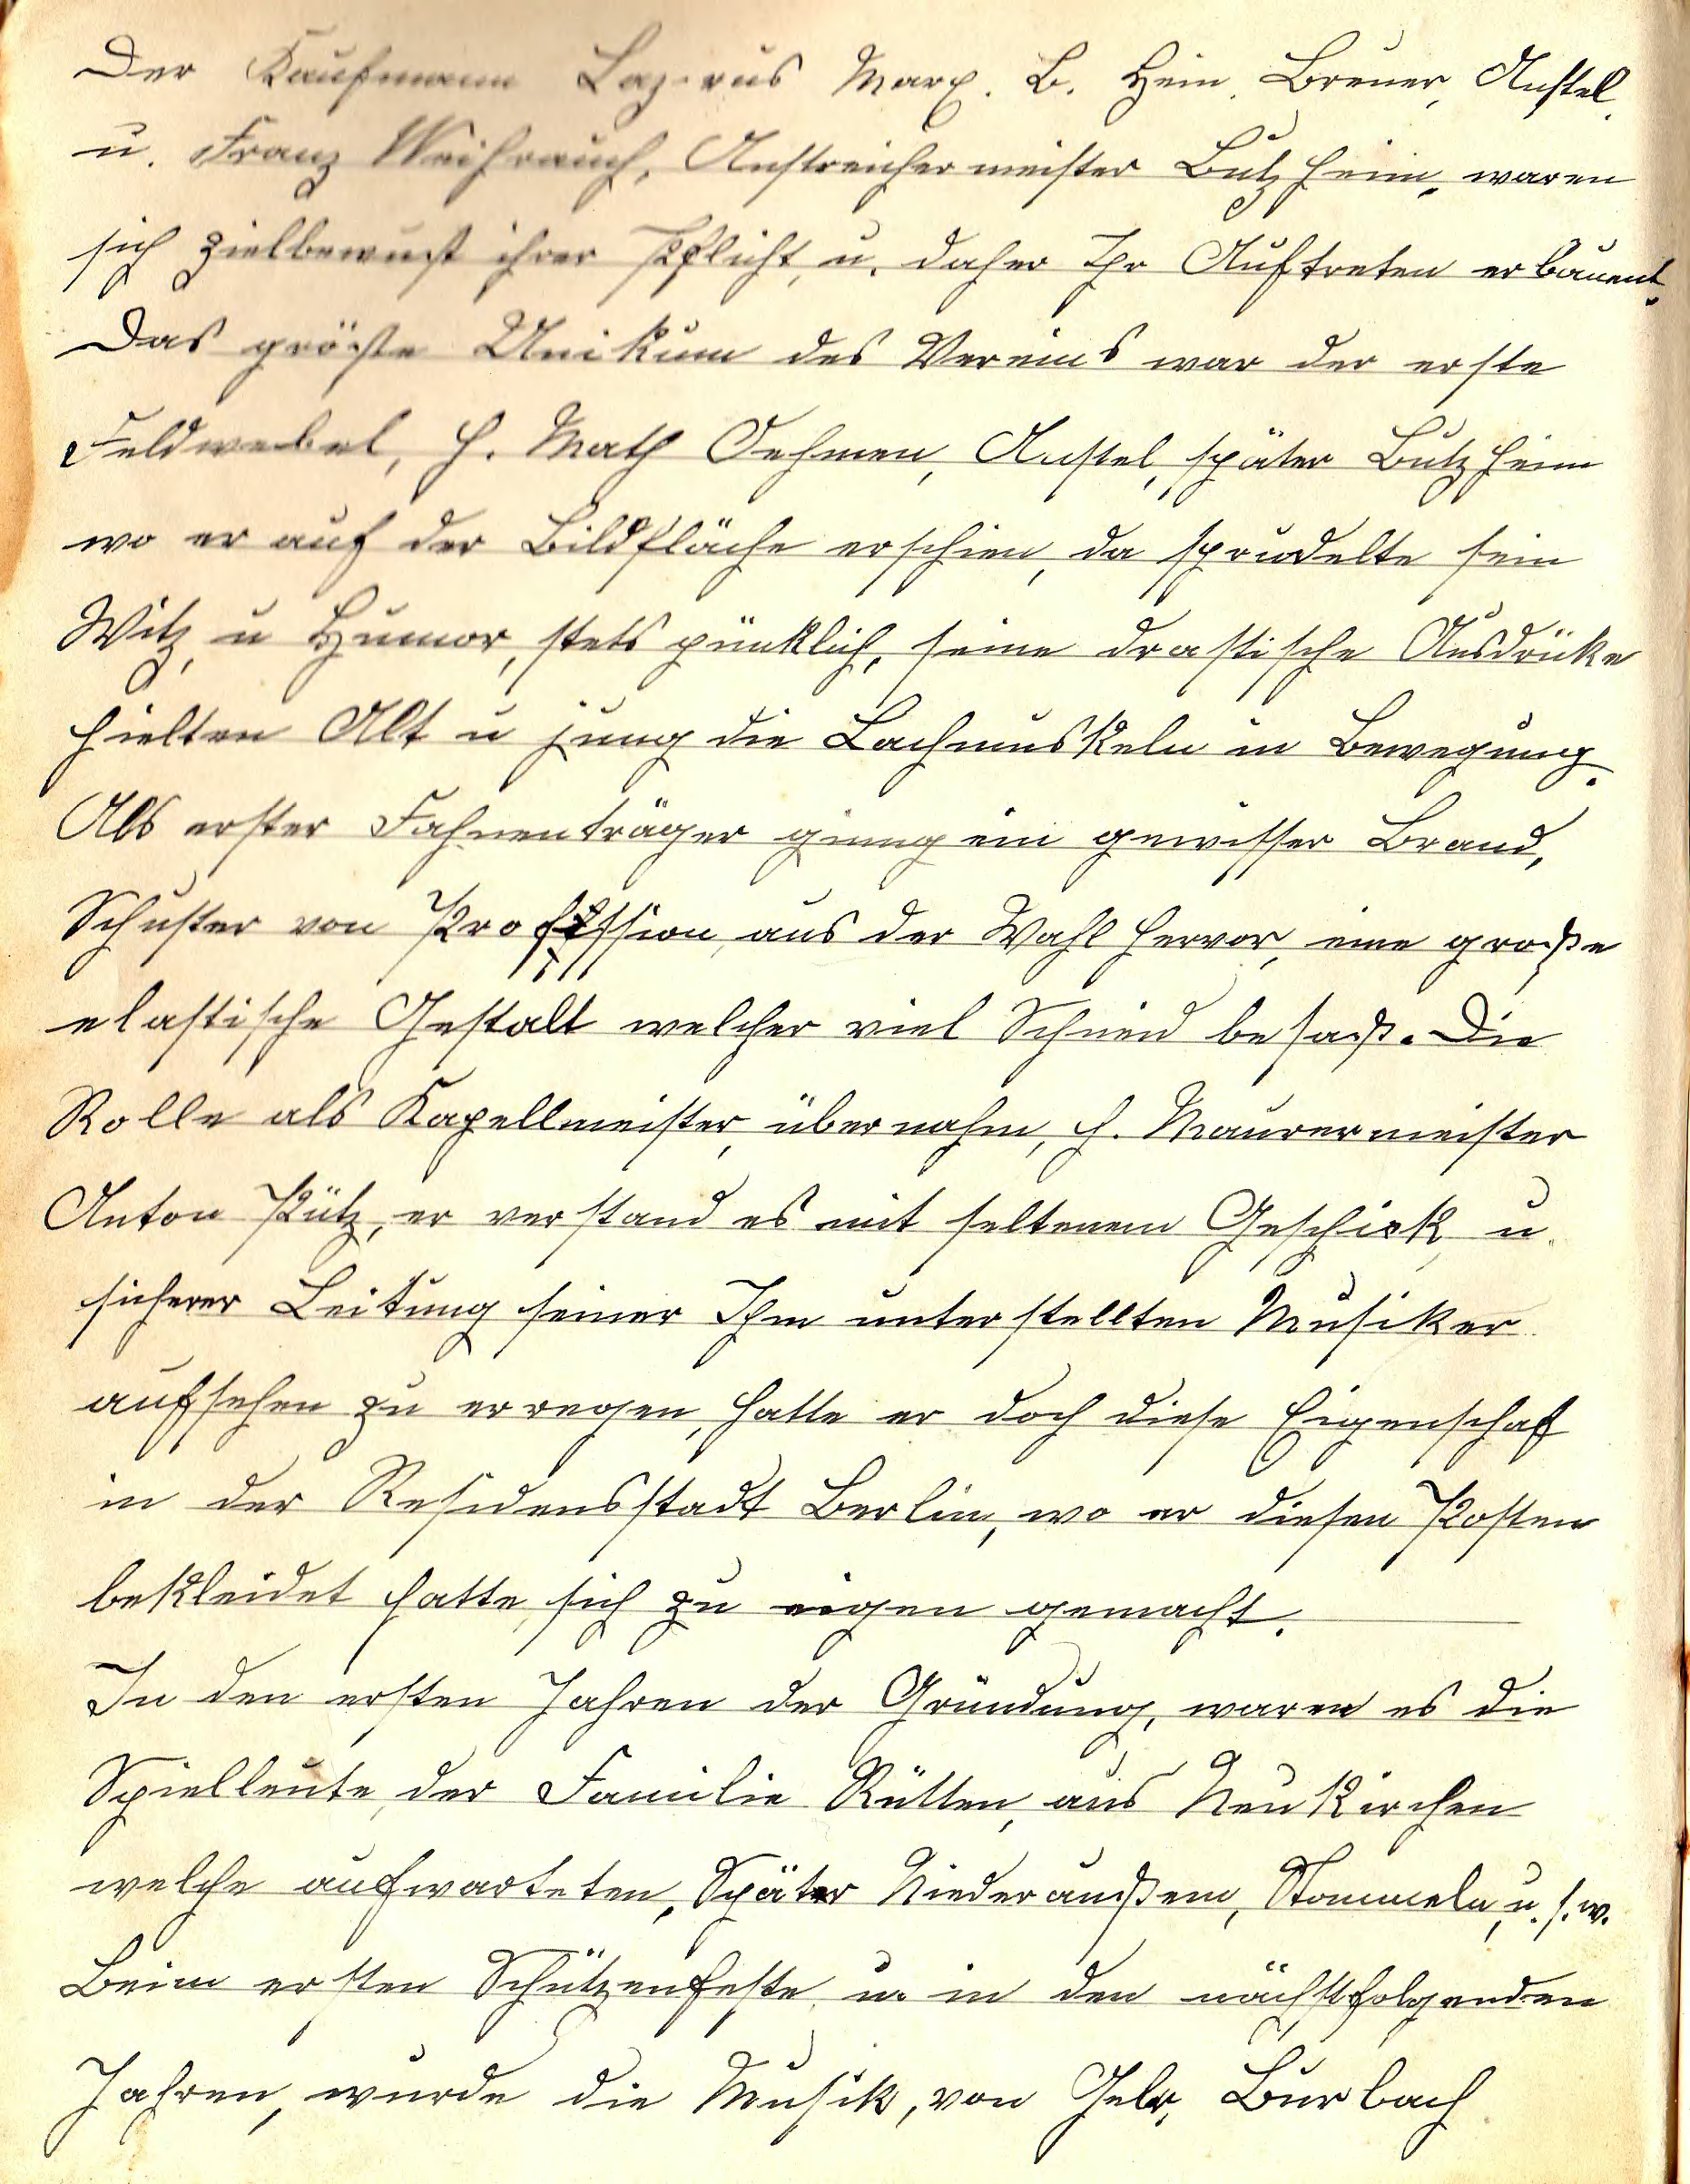 Der Kaufmann Lazarus Marx. B. Hein. Breuer, Anstel,
u. Franz Weihrauch, Anstreichermeister Butzheim, waren
sich zielbewußt ihrer Pflicht, u. daher Ihr Auftreten erbauent.
Das größte Unikum des Vereins war der erste
Feldwebel, H. Math Oehmen, Anstel, später Butzheim
wo er auf der Bildfläche erschien, da sprudelte sein
Witz, u Humor, stets pünklich, seine drastische Ausdrüke
hielten Alt u jung die Lachmuskeln in Bewegung.
Als erster Fahnenträger ginng ein gewisser Brand,
Schuster von Profession, aus der Wahl hervor, eine große
elastische Gestalt welcher viel Schneid besaß. Die
Rolle als Kapellmeister, übernahm, H. Maurermeister
Anton Pütz, er verstand es mit seltenem Geschick, u.
sicherer Leitung seiner Ihm unterstellten Musiker
aufsehen zu erregen, hatte er doch diese Eigenschaf
in der Residensstadt Berlin, wo er diesen Posten
bekleidet hatte, sich zu eigen gemacht.
In den ersten Jahren der Gründung, waren es die
Spielleute, der Familie Rütten, aus Neukirchen
welche aufwarteten, Später Niederaußem, Stommeln, u. s. w.
Beim ersten Schützenfeste u. in den nächstfolgenden
Jahren, wurde die Musik, von Gebr. Burbach